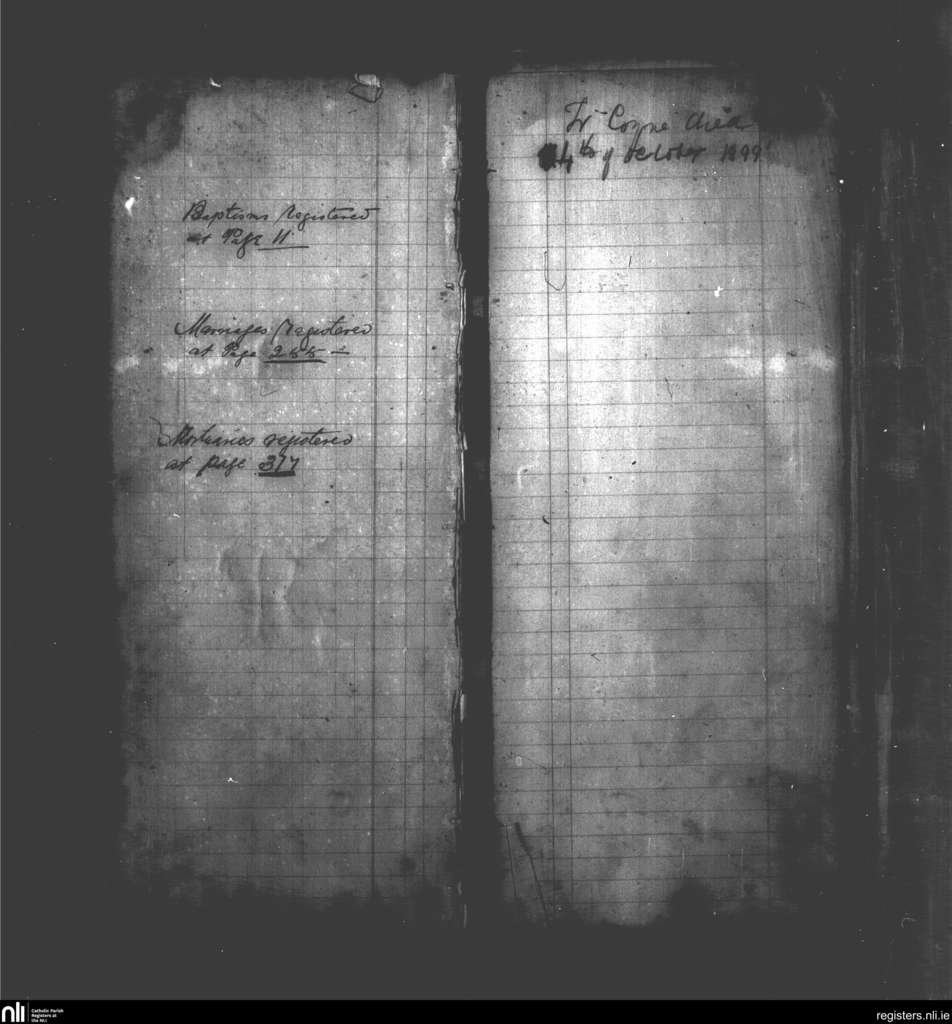 Baptisms registered
at Page 11
Marriages registered
at Page 255
Mortuaries registered
at page 317
Fr Coyne died
4th of October 1899
nli
Catholic Parish
Registers at
the NLI
registers.nli.ie